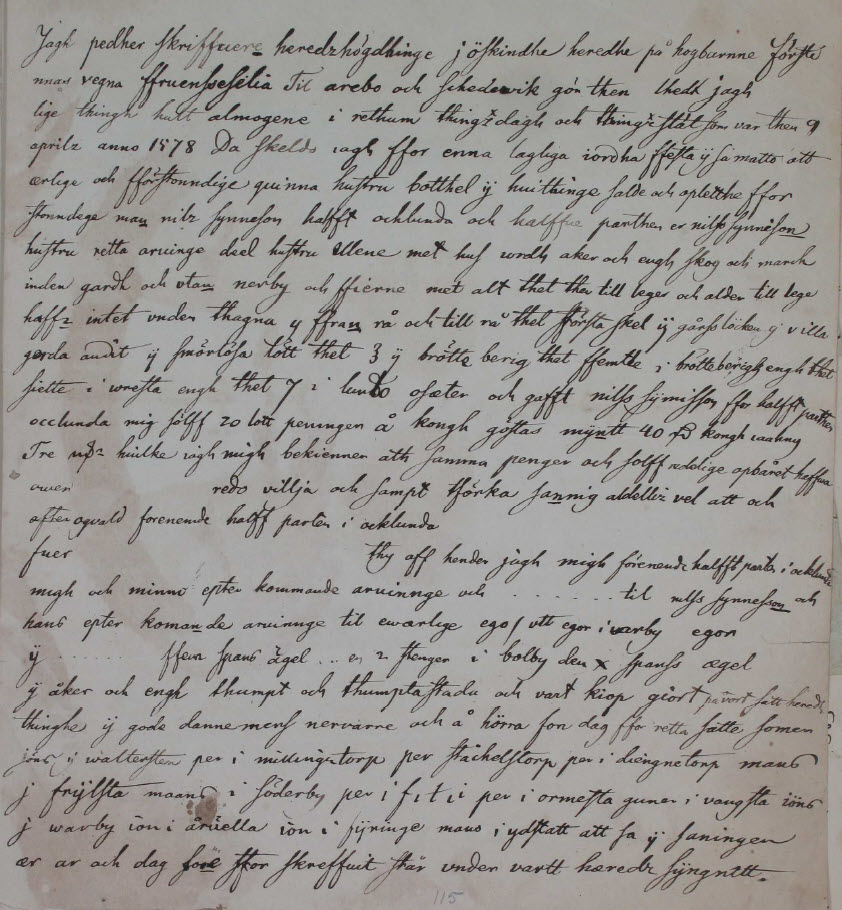 Jagh pedher skriffuere heredzhögdhinge j öskindhe heredhe på hogburnne förste
nnas vegna ffruensesesilia Til arebo och skedewik gör then thedt jagh
lige thingh hult almogene i rethum thingzdagh och thingzstat som var then 9
aprilz anno 1578 Da skelds iagh ffor enna lagliga iordha ffesta ÿ så matto att
ærlige och fförstonndige quinna hustru botthel ÿ huithinge salde och opletthe ffor
stonndege man nilz synneson halfft ocklunda och halffue parthen er nilss synneson
hustru retta aruinge deel hustru Ellene met hus iordh aker och engh skog och march
inden gardh och vtan nerby och ffierne met alt thet ther till leger och alder till lege
haffr intet vnden thagna y ffran rå och till rå thet första skel ÿ gårsslöcken ÿ villa
gerda andit ÿ smörlösa hött thet 3 ÿ brötte berig thet ffemtte i brötteberigs engh thet
siette i wresta engh thet 7 i lundo osæter och gafft nilss symisson ffor halfft parthen
occlunda mig sölff 20 lott peningen å kongh gostas myntt 40 kongh
Tre huilke iagh migh bekienner ath samma penger och solff redelige opbåret haffua
ower redo villja och sampt thörka sannig aldelliz vel att och
after ogvald forenemde halff parten i ocklunda
fuer thy aff hender jagh migh förenende halfft parten i ocklunda
migh och minne epter kommande aruinnge och . . . . . . . til nilss synnesson och
hans epter komande aruinnge til ewærlige ego / vtt egor i warby egor
ÿ . . . . . . ffem spans ägel . . en 2 stenger i bolby den x spanss ægel
ÿ åker och engh thumpt och thumptastadu och vart kiop giort på vort sått heredz
thinghe ÿ gode dannemens nervarre och å hörra fon dag ffor retta sätte somen
jöns ÿ waltersten per i millingetorp per stäckelstorp per i diengnetorp mans
j frijlsta maans i söderby per i f i t i i per i ormesta guner i vangsta iöns
j warby ion i åruella ion i sÿringe mans i ydstatt att sa ÿ saningen
ær ar och dag före stor skreffuit står vnder vartt hæredz sÿngnett.
115